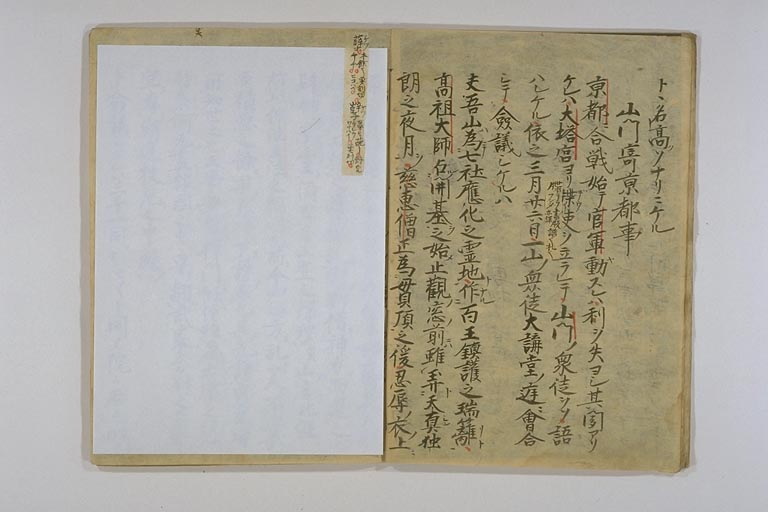 ト、名高ソナリニケル
山門寄京都事
京都ニ合戦始テ官軍動スレハ利ヲ失ヨシ其聞アリ
ケレハ大塔宮ヨリ牒使ヲ立ラレテ山門ノ衆徒ヲソ語
ハレケル依之三月廿六日一山ノ衆徒大講堂ノ庭ニ會合
シテ僉議シケルハ
夫吾山為七社應化之霊地作百王鎮護之瑞籬
高祖大師占開基之始止觀窓前雖弄天真独
朗之夜月慈恵僧正為貫頂之後忍辱衣上